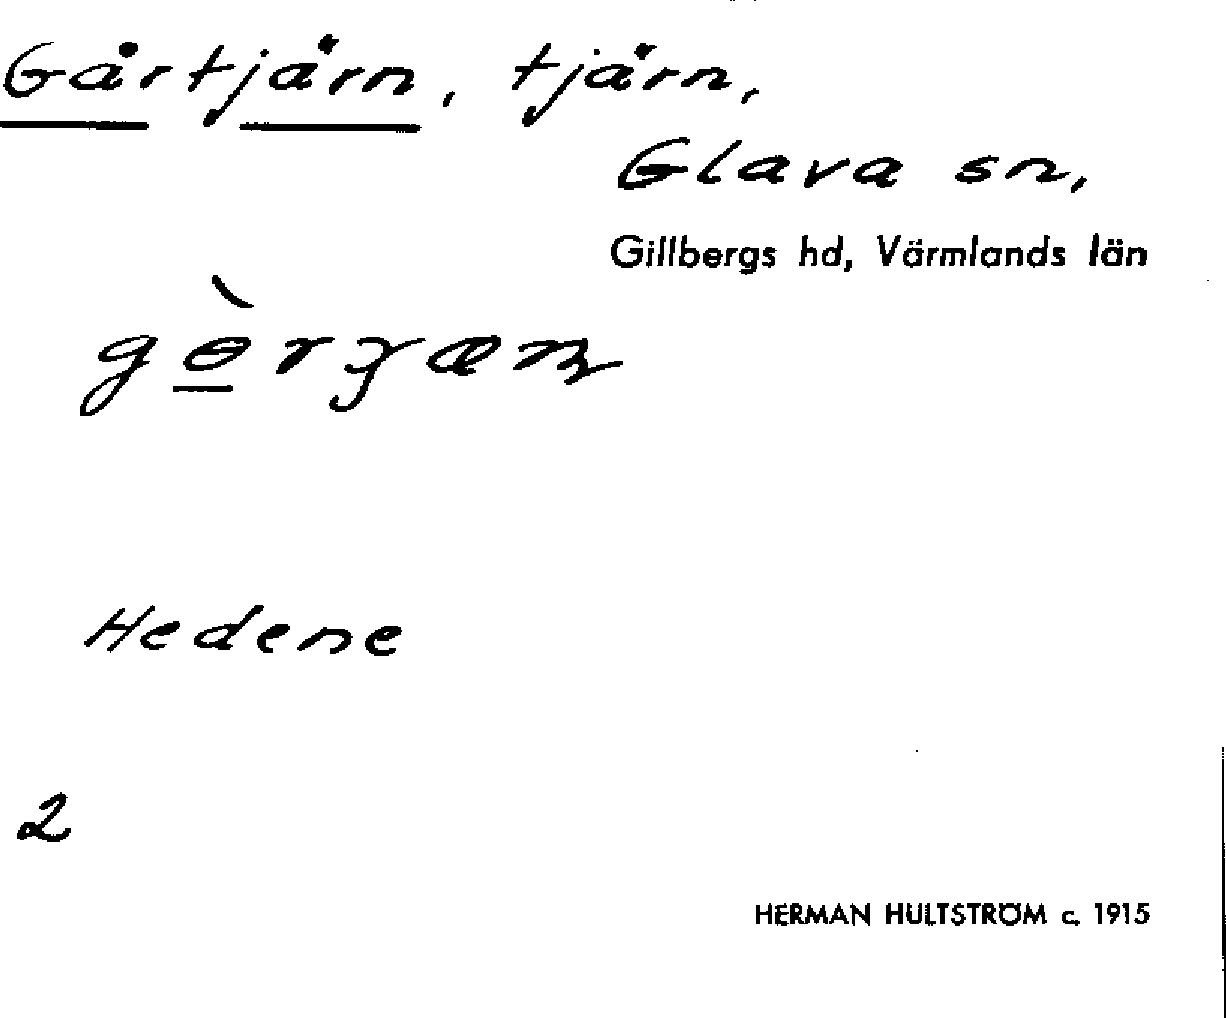 Gårtjärn, tjärn,
Glava sn,
Gillbergs hd, Värmlands län
Hedene
2
HERMAN HULTSTRÖM c. 1915